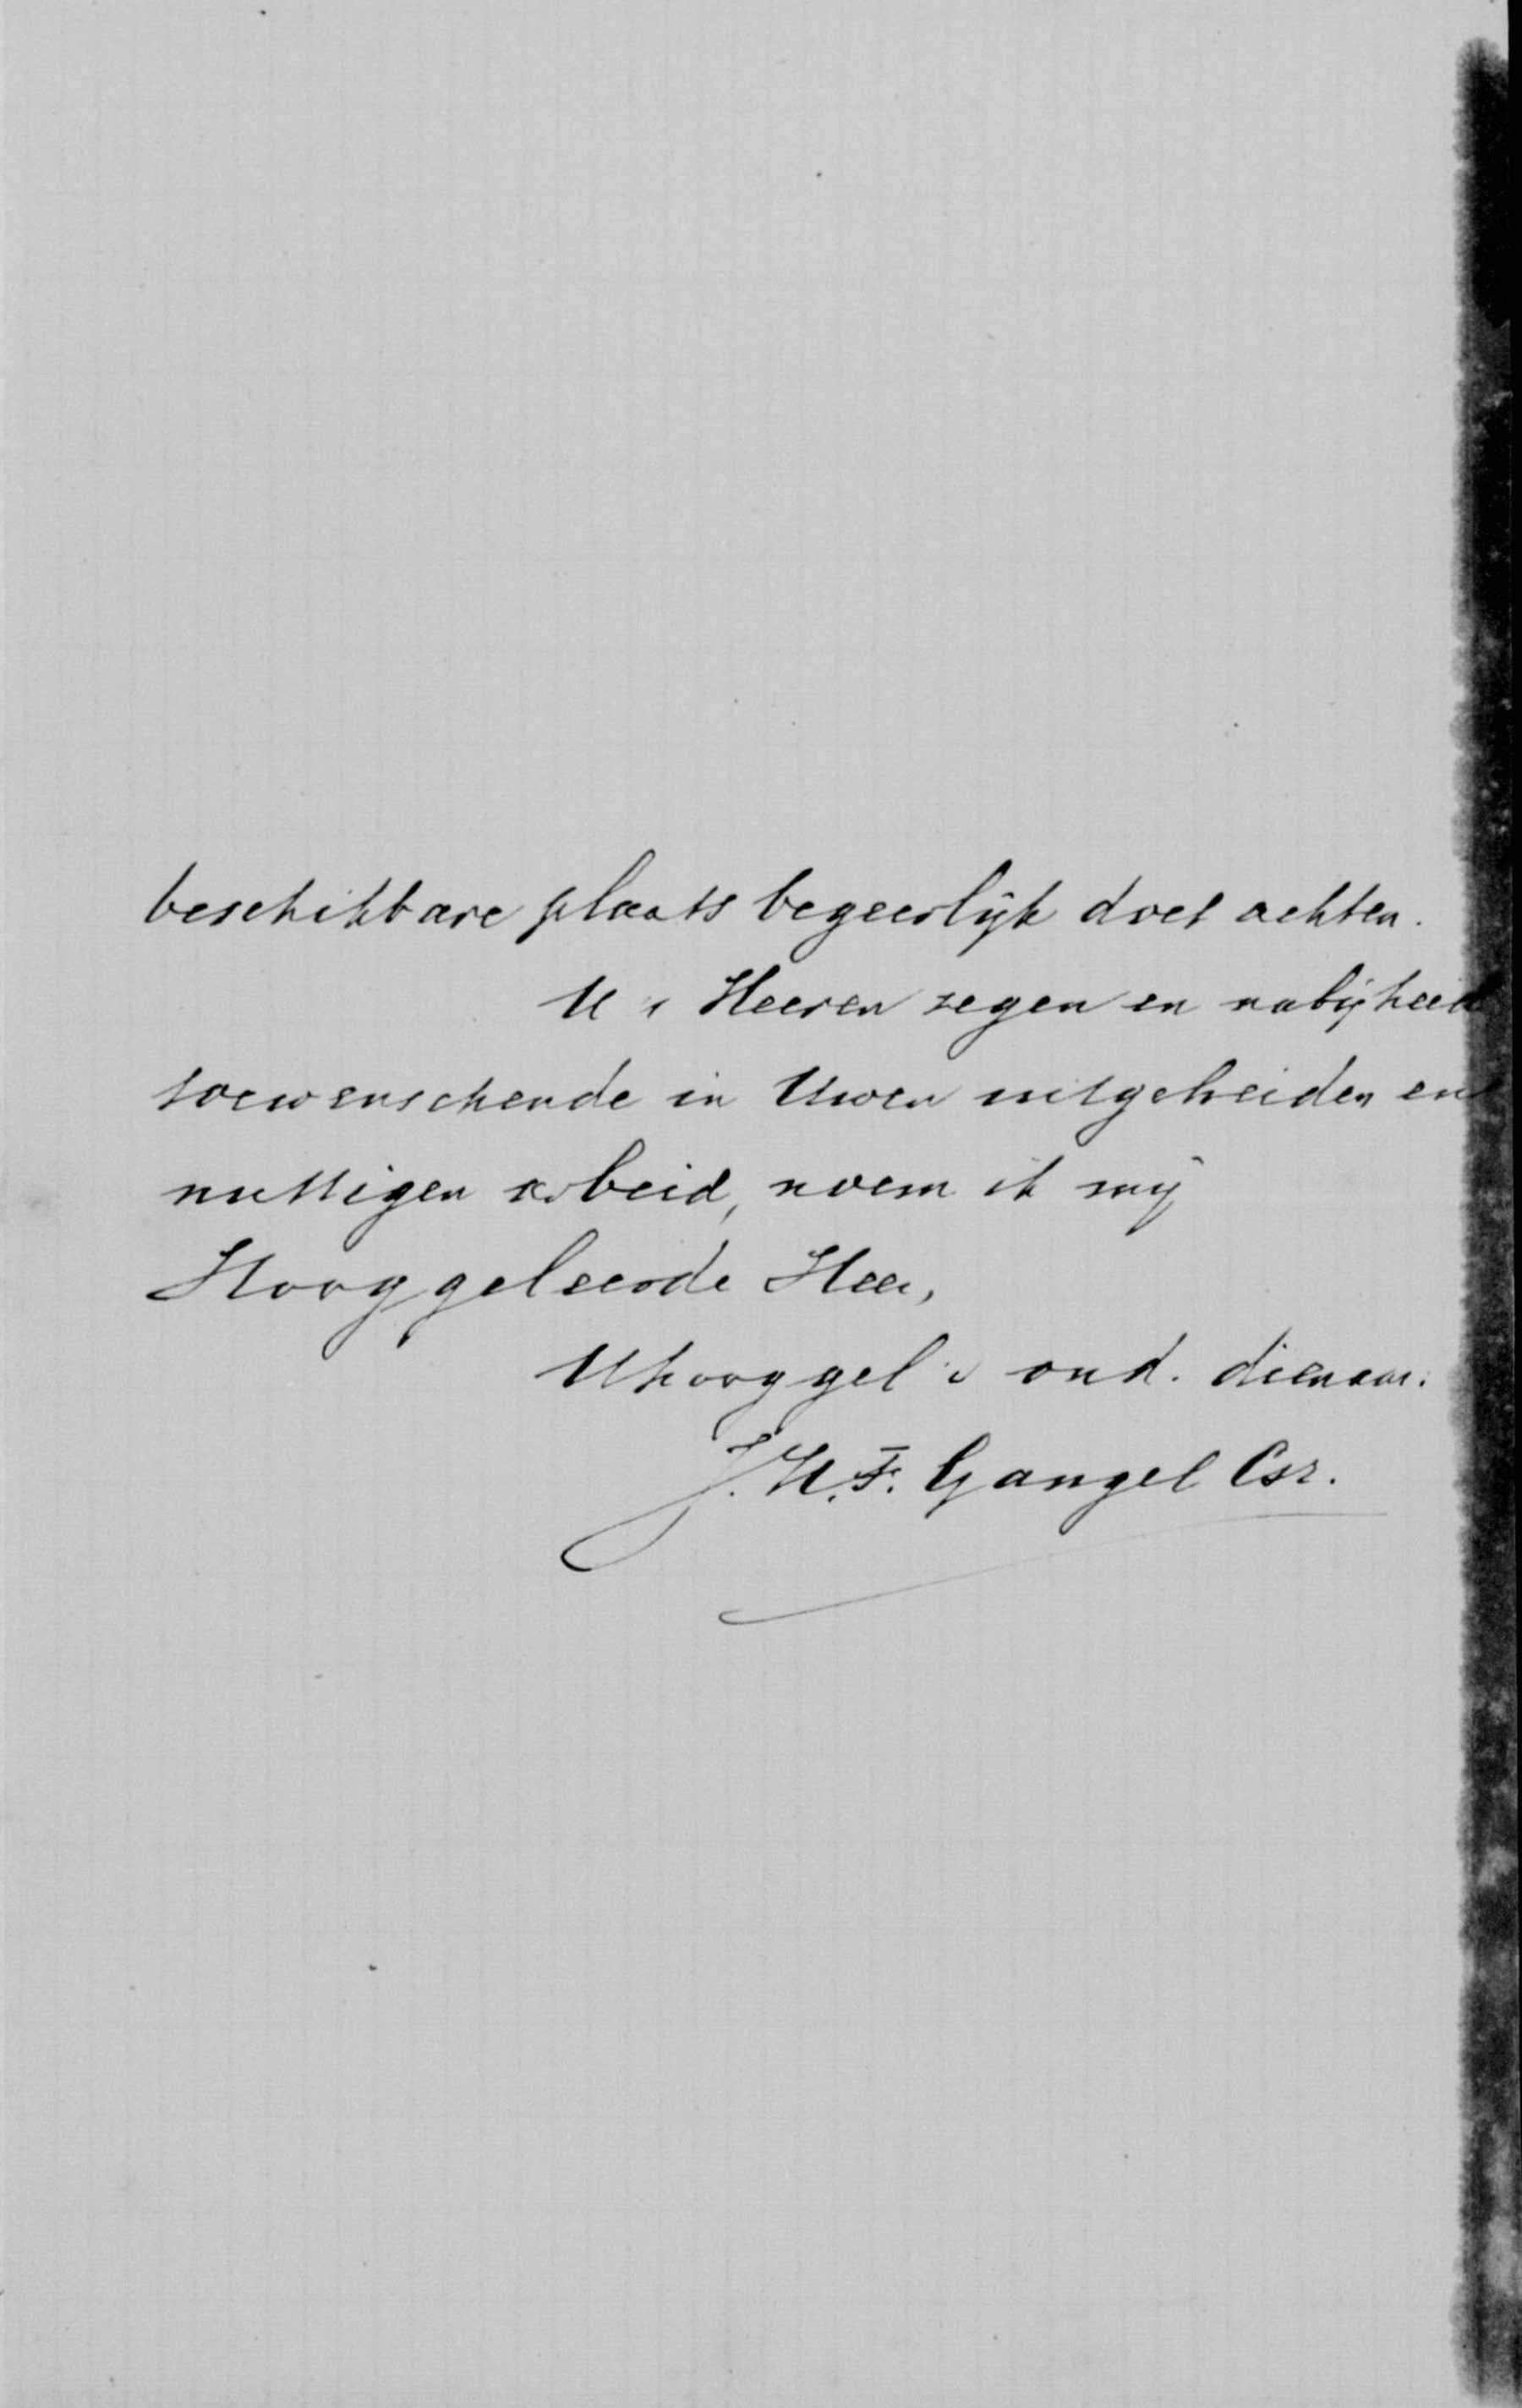 beschikbare plaats begeerlijk doet achten.
U 's Heeren zegen en nabijheid
toewenschende in Uwen uitgebreiden en
nuttigen arbeid, noem ik mij
Hooggeleerde Heer,
Uhooggel's ond. dienaar.
J.H.F. Gangel Csr.